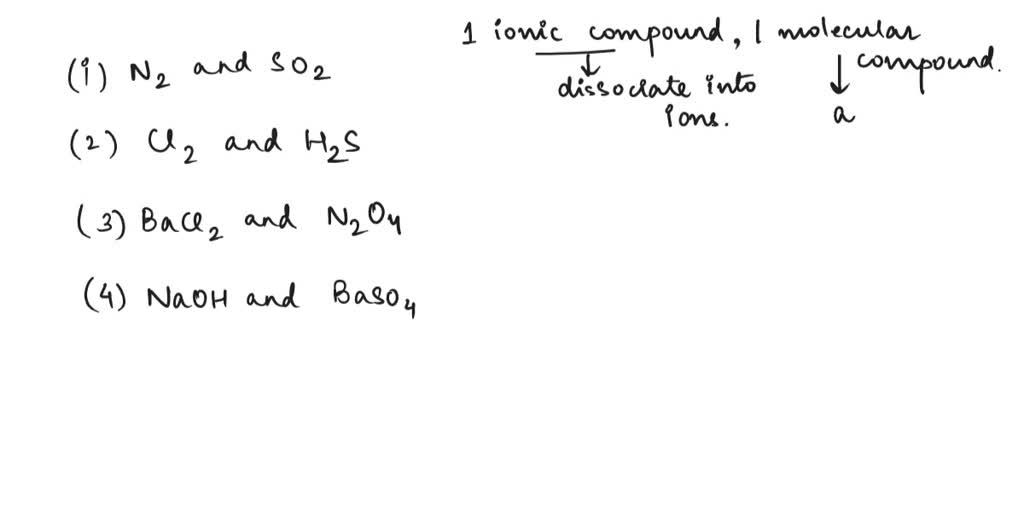 1 ionic compound, 1 molecular
(i) N2 and SO2
↓ dissociate into ions.
↓ compound.
a
(2) Cl2 and H2S
(3) BaCl2 and N2O4
(4) NaOH and BaSO4